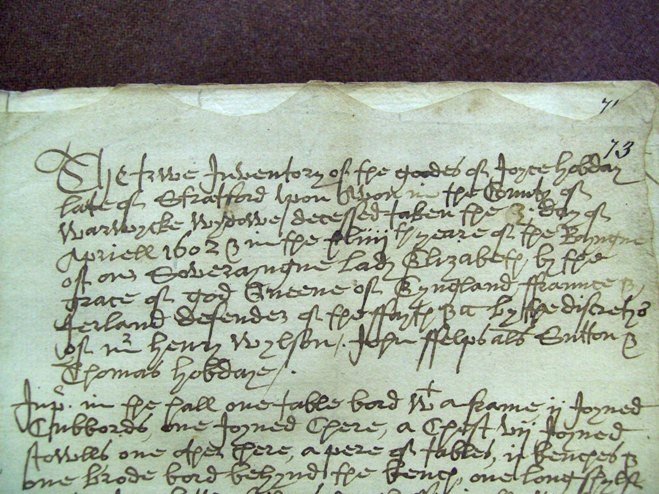 71
73
The trwe Inventory of the goodes of Joyce hobday
late of Stratford upon Avon in the County of
Warwycke Wydowe decessed taken the 3 day of
Apriell 1602 & in the xliiijth yeare of the Raingne
of our Soveraingne Lady Elizabeth by the
grace of god Queene of Eyngland ffraunce &
Ierland defender of the ffayth &c by the discretyo
of mr henry Wylson, John ffelps als Sutton &
Thomas hobdaye /
Inp in the hall one table bord wt a frame ij Joyned
Cubbords, one Joyned Chere, a Chest vij Joyned
stowlls one other chere, a pere of tables, ij benches &
one brode bord behynd the bench, one long